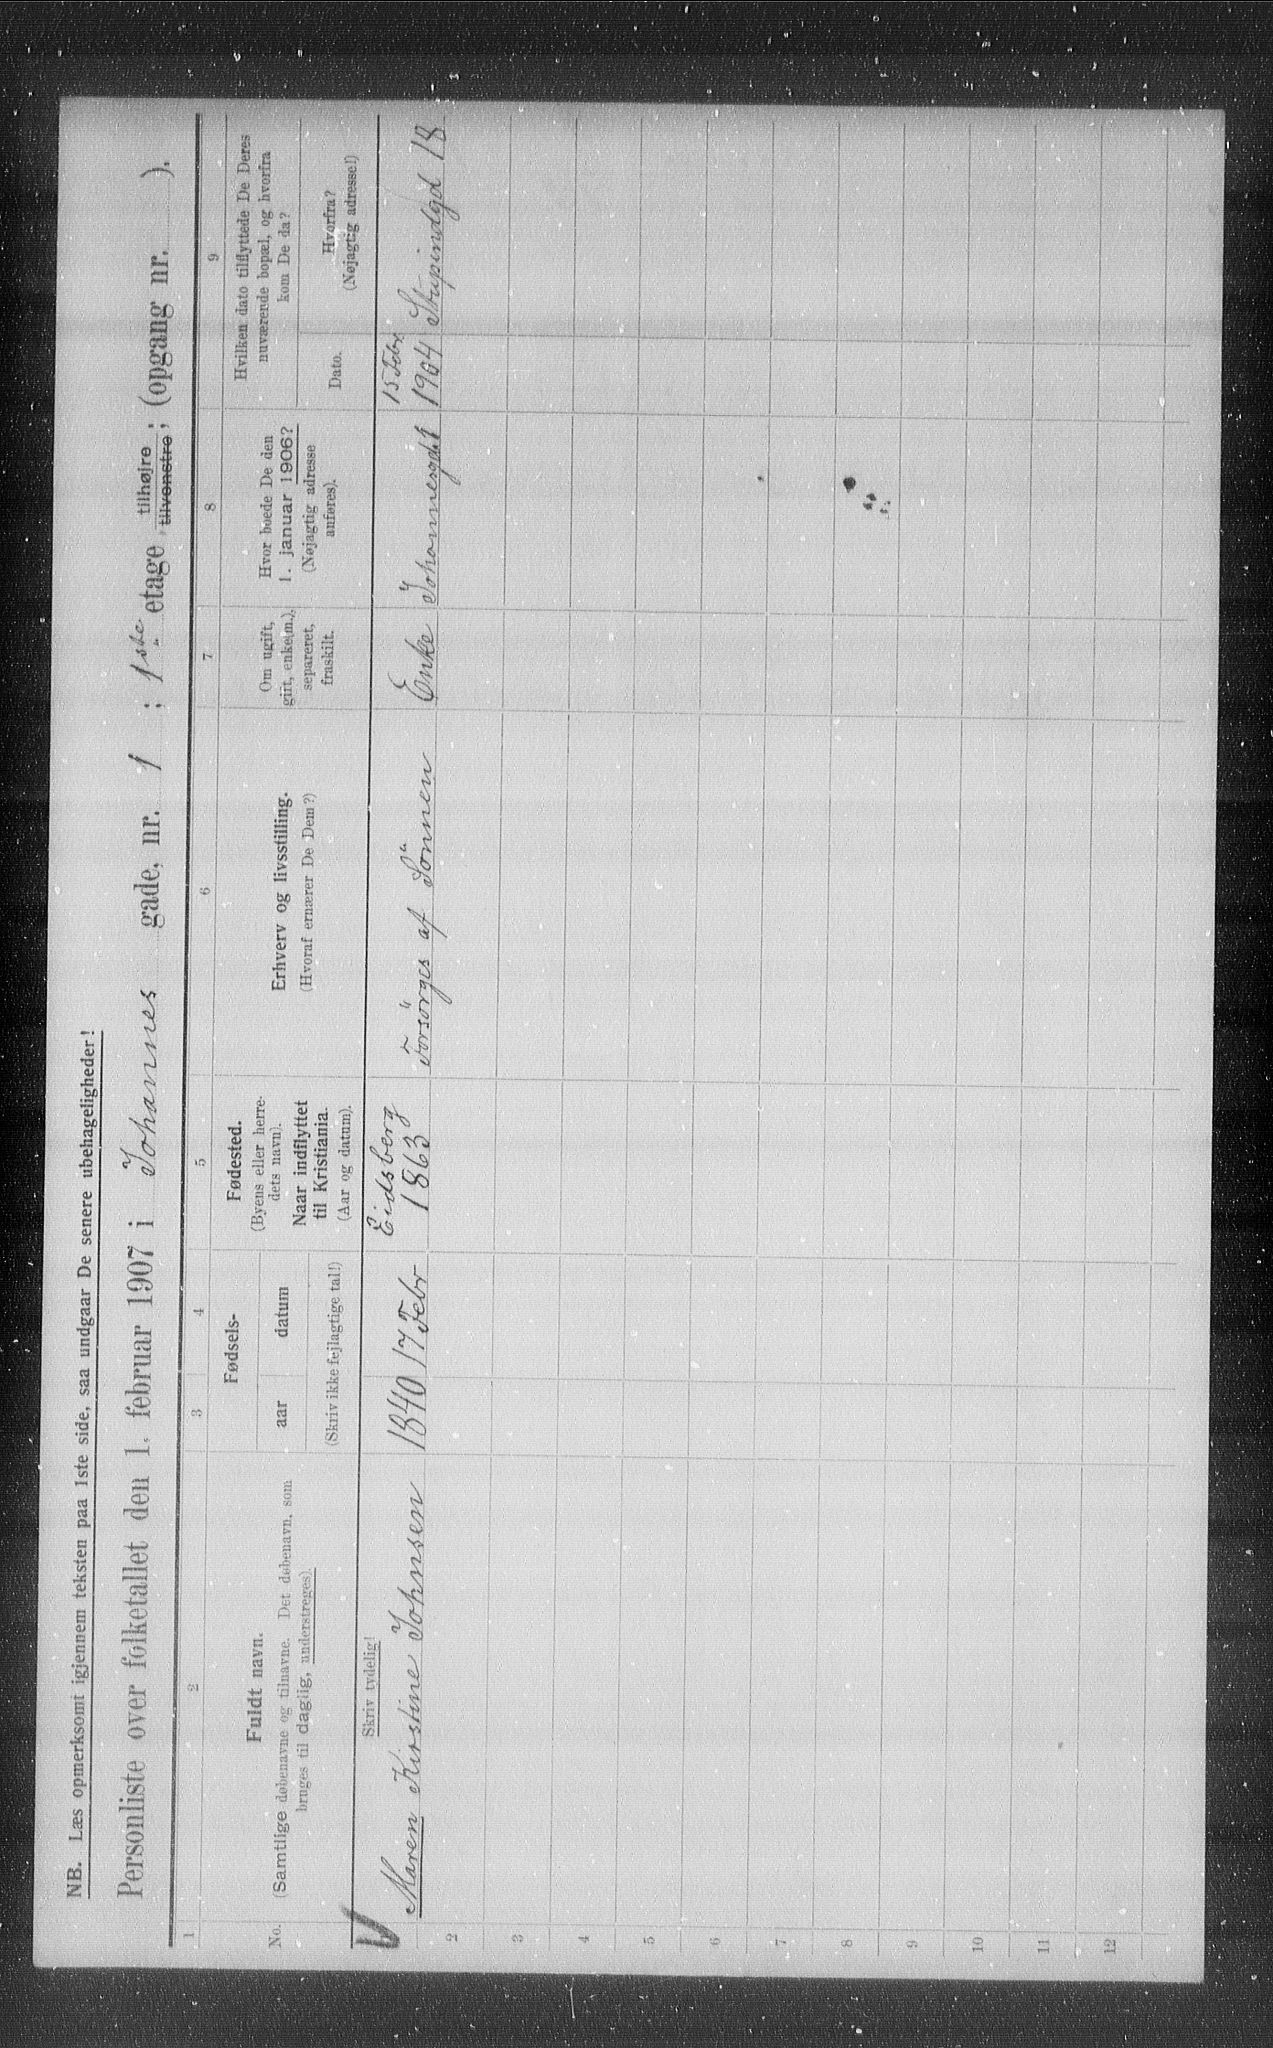 NB. Læs opmerksomt igjennem teksten paa 1ste side, saa undgaar De senere ubehageligheder!
Personliste over folketallet den 1. februar 1907 i Johannes gade, nr. 1 ; 1ste etage tilhøjre ; (opgang nr. ).
tilvenstre ;
1 2 3 4 5 6 7 8 9
No.
Fuldt navn.
(Samtlige døbenavne og tilnavne. Det døbenavn, som
bruges til daglig, understreges).
Fødsels-
aar datum
(Skriv ikke fejlagtige tal!)
Fødested.
(Byens eller herre-
dets navn).
Naar indflyttet
til Kristiania.
(Aar og datum).
Erhverv og livsstilling.
(Hvoraf ernærer De Dem?)
Om ugift,
gift, enke(m.),
separeret,
fraskilt.
Hvor boede De den
1. januar 1906?
(Nøjagtig adresse
anføres).
Hvilken dato tilflyttede De Deres
nuværende bopæl, og hvorfra
kom De da?
Dato.
Hvorfra?
(Nøjagtig adresse!)
Skriv tydelig!
Maren Kirstine Johnsen
1840
17 Febr
Eidsberg
1863
Forsörges af Sönnen
Enke
Johannesgd 1
15 Febr
1904
18
2
3
4
5
6
7
8
9
10
11
12